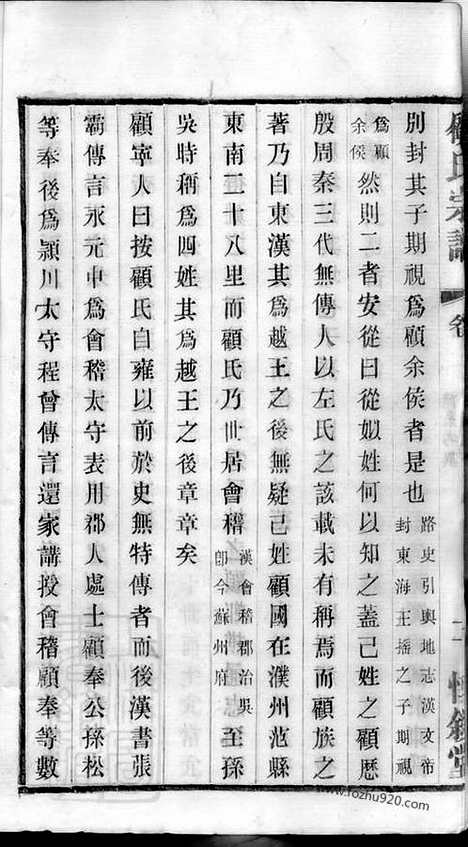 別封其子期視爲顧余侯者是也路史引輿地志漢文帝
封東海王搖之子期視
爲顧
余侯然則二者安從曰從姒姓何以知之蓋己姓之顧歷
殷周秦三代無傳人以左氏之該載未有稱焉而顧族之
著乃自東漢其爲越王之後無疑己姓顧國在濮州范縣
東南二十八里而顧氏乃世居會稽漢會稽郡治吳
卽今蘇州府至孫
吳時稱爲四姓其爲越王之後章章矣
顧寧人曰按顧氏自雍以前於史無特傳者而後漢書張
霸傳言永元中爲會稽太守表用郡人處士顧奉公孫松
等奉後爲潁川太守程曾傳言還家講授會稽顧奉等數
顧氏宗譜
卷
www.fozhu920.com